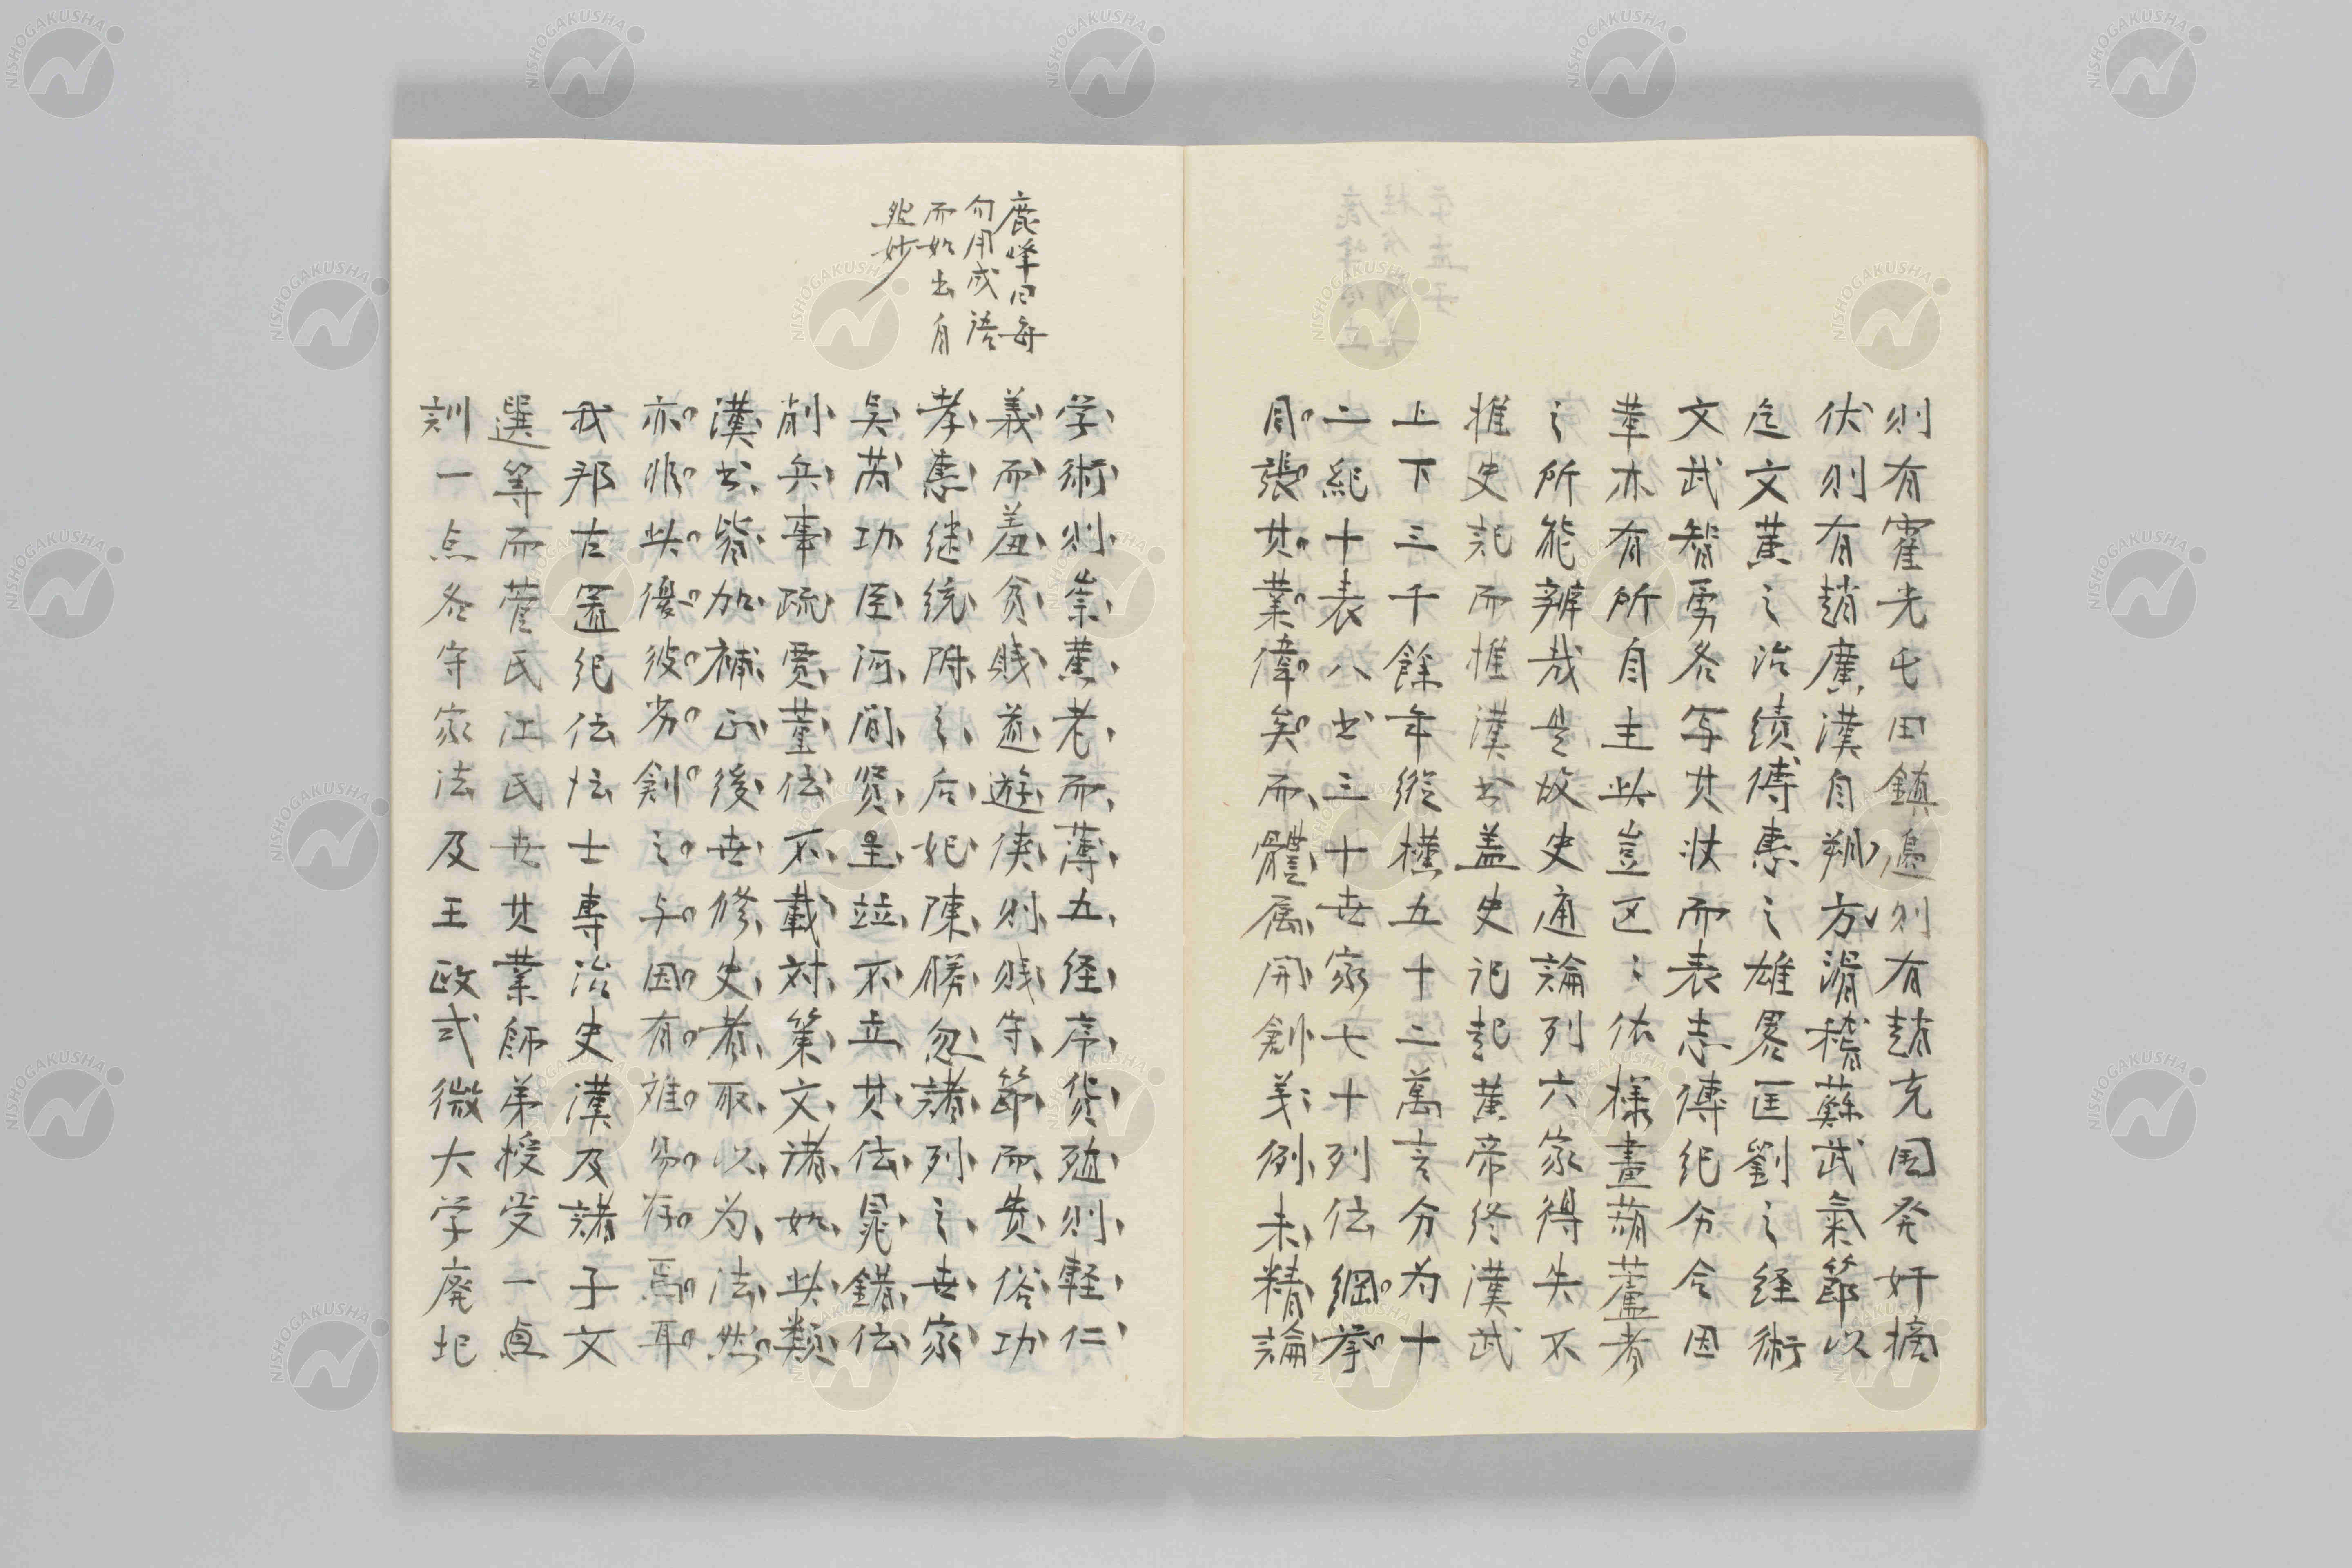 則有霍光屯田鎮邊則有趙充国発奸擿
伏則有趙廣漢自朔方滑稽蘇武氣節以
迄文黄之治績傅惠之雄畧匡劉之経術
文武智勇各写其状而表志傳紀分合因
革亦有所自主此豈区〻依様畫葫蘆者
之所能辨哉是故史通論列六家得失不
推史記而推漢書盖史記起黄帝終漢武
上下三千餘年縱横五十二萬言分为十
二紀十表八書三十世家七十列伝綱挙
目張其業偉矣而體属開創義例未精論
学術則崇黄老而薄五経序貨殖則軽仁
義而羞贫賎道遊侠則賎守節而贵俗功
孝惠継統附之后妃陳勝忽諸列之世家
吴芮功臣河间贤王竝不立其伝鼂錯伝
削兵事疏贾董伝不載対策文諸如此類
漢書皆加補正後世修史者取以为法然
亦非此優彼劣創之与因有難易存焉耳
我邦古置纪伝博士專治史漢及諸子文
選等而菅氏江氏世其業師弟授受一点
訓一点各守家法及王政式微大学廃圮
鹿峰曰每
句用成語
而如出自
然妙
NISHOGAKUSHA